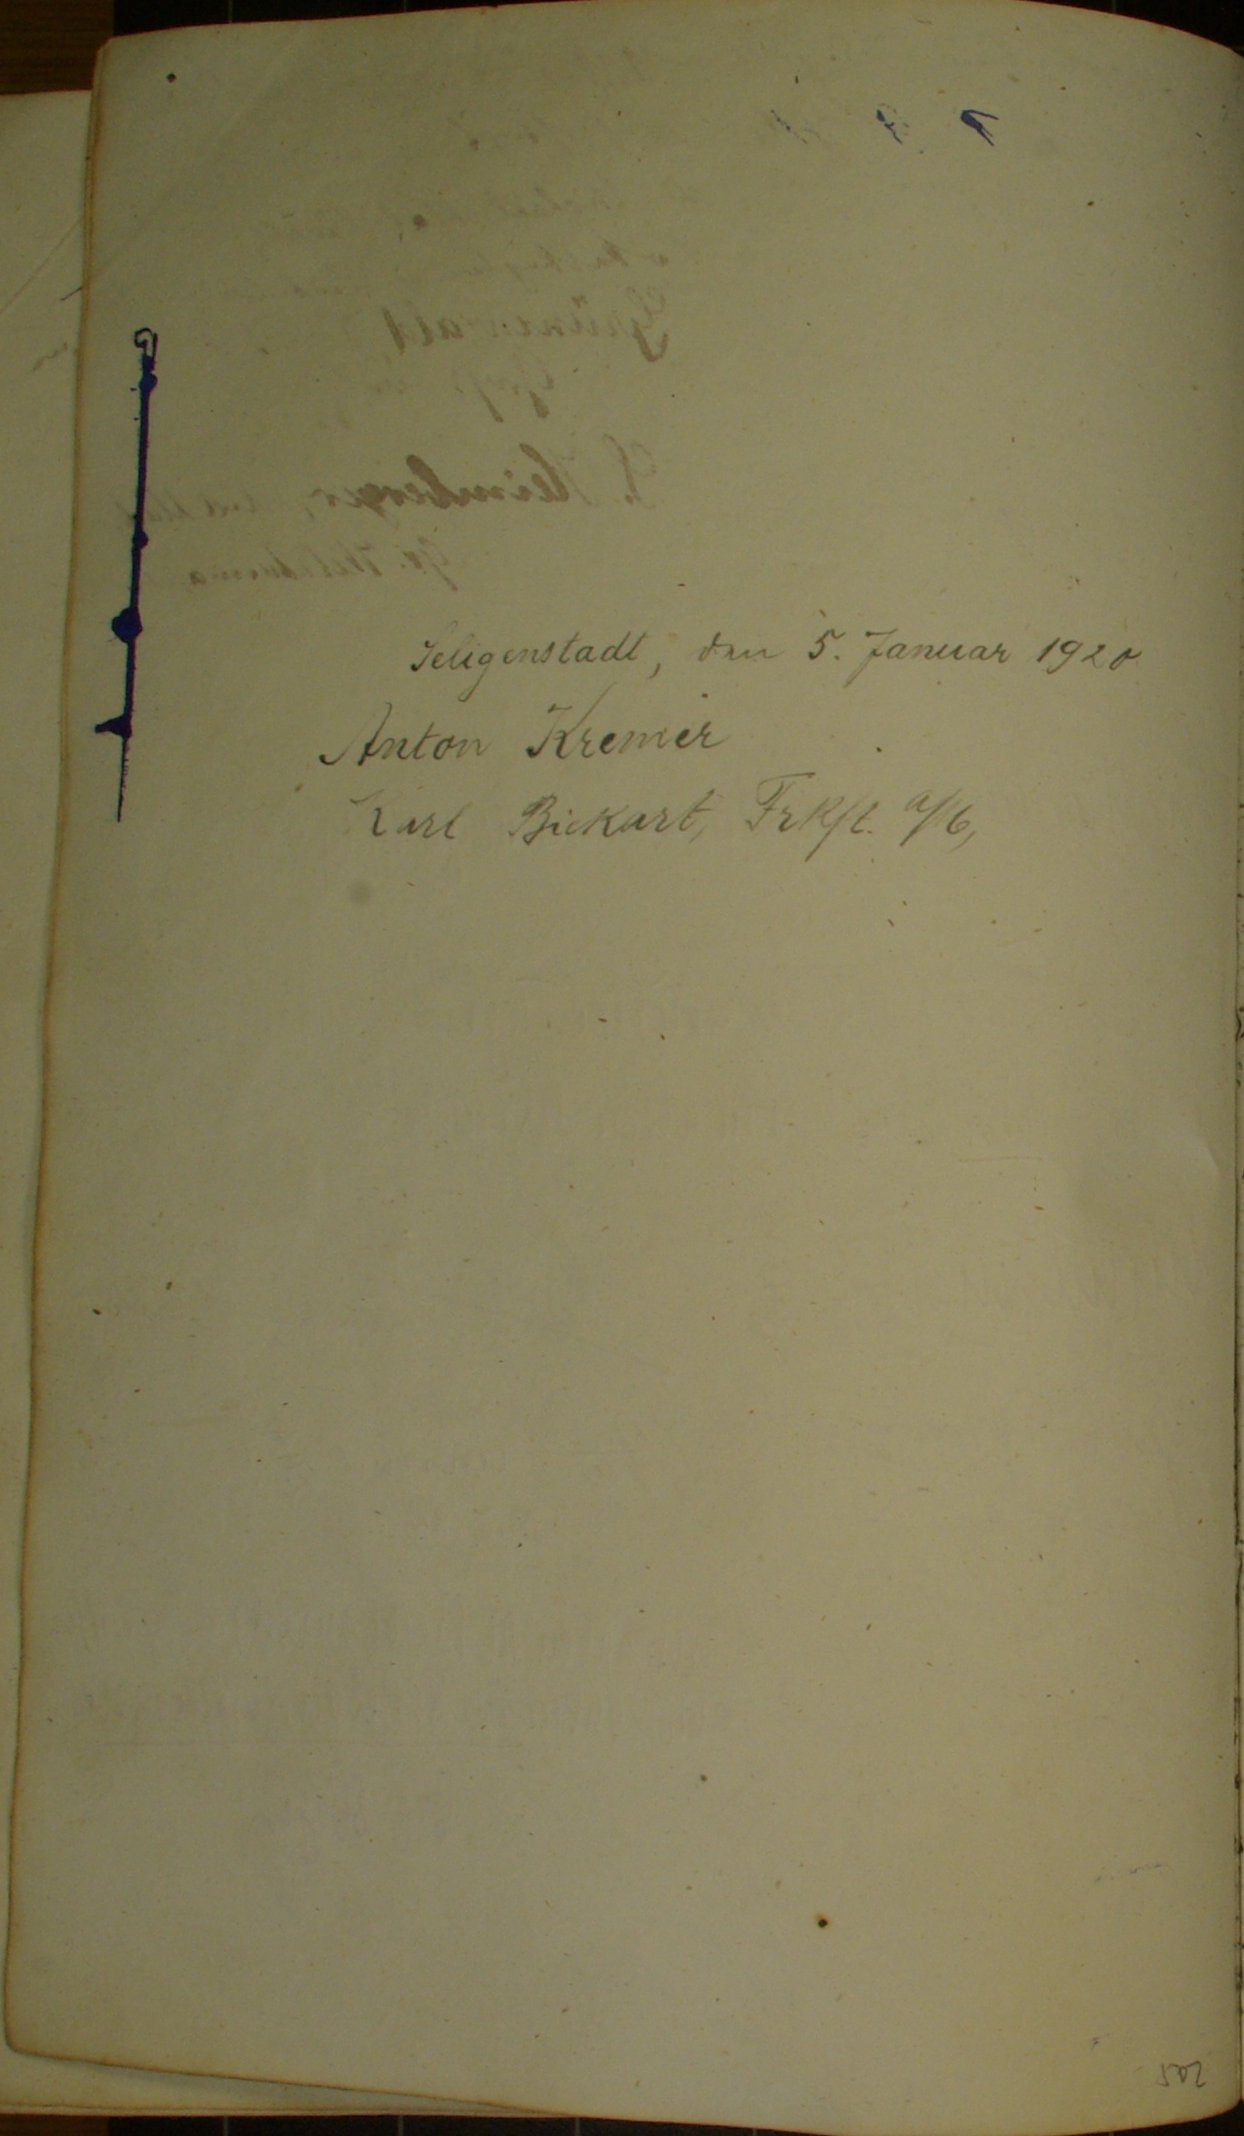 Seligenstadt, den 5. Januar 1920
Anton Kremer
Karl Bickart, Frkft. a/M,
502